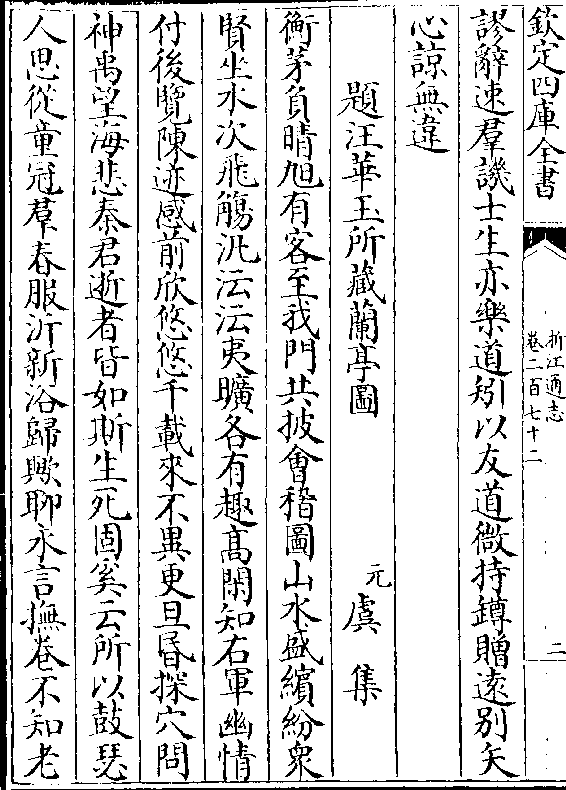 欽定四庫全書
浙江通志
卷二百七十二
二
謬辭速羣譏士生亦樂道矧以友道微持罇贈遠别矢
心諒無違
題汪華玉所藏蘭亭圖
元虞集
衡茅負晴旭有客至我門共披會稽圖山水盛繽紛衆
賢坐水次飛觴汎沄沄夷曠各有趣髙閑知右軍幽情
付後覽陳迹感前欣悠悠千載來不異更旦昏探穴問
神禹望海悲秦君逝者皆如斯生死固奚云所以鼓瑟
人思從童冠羣春服沂新浴歸歟聊永言撫卷不知老